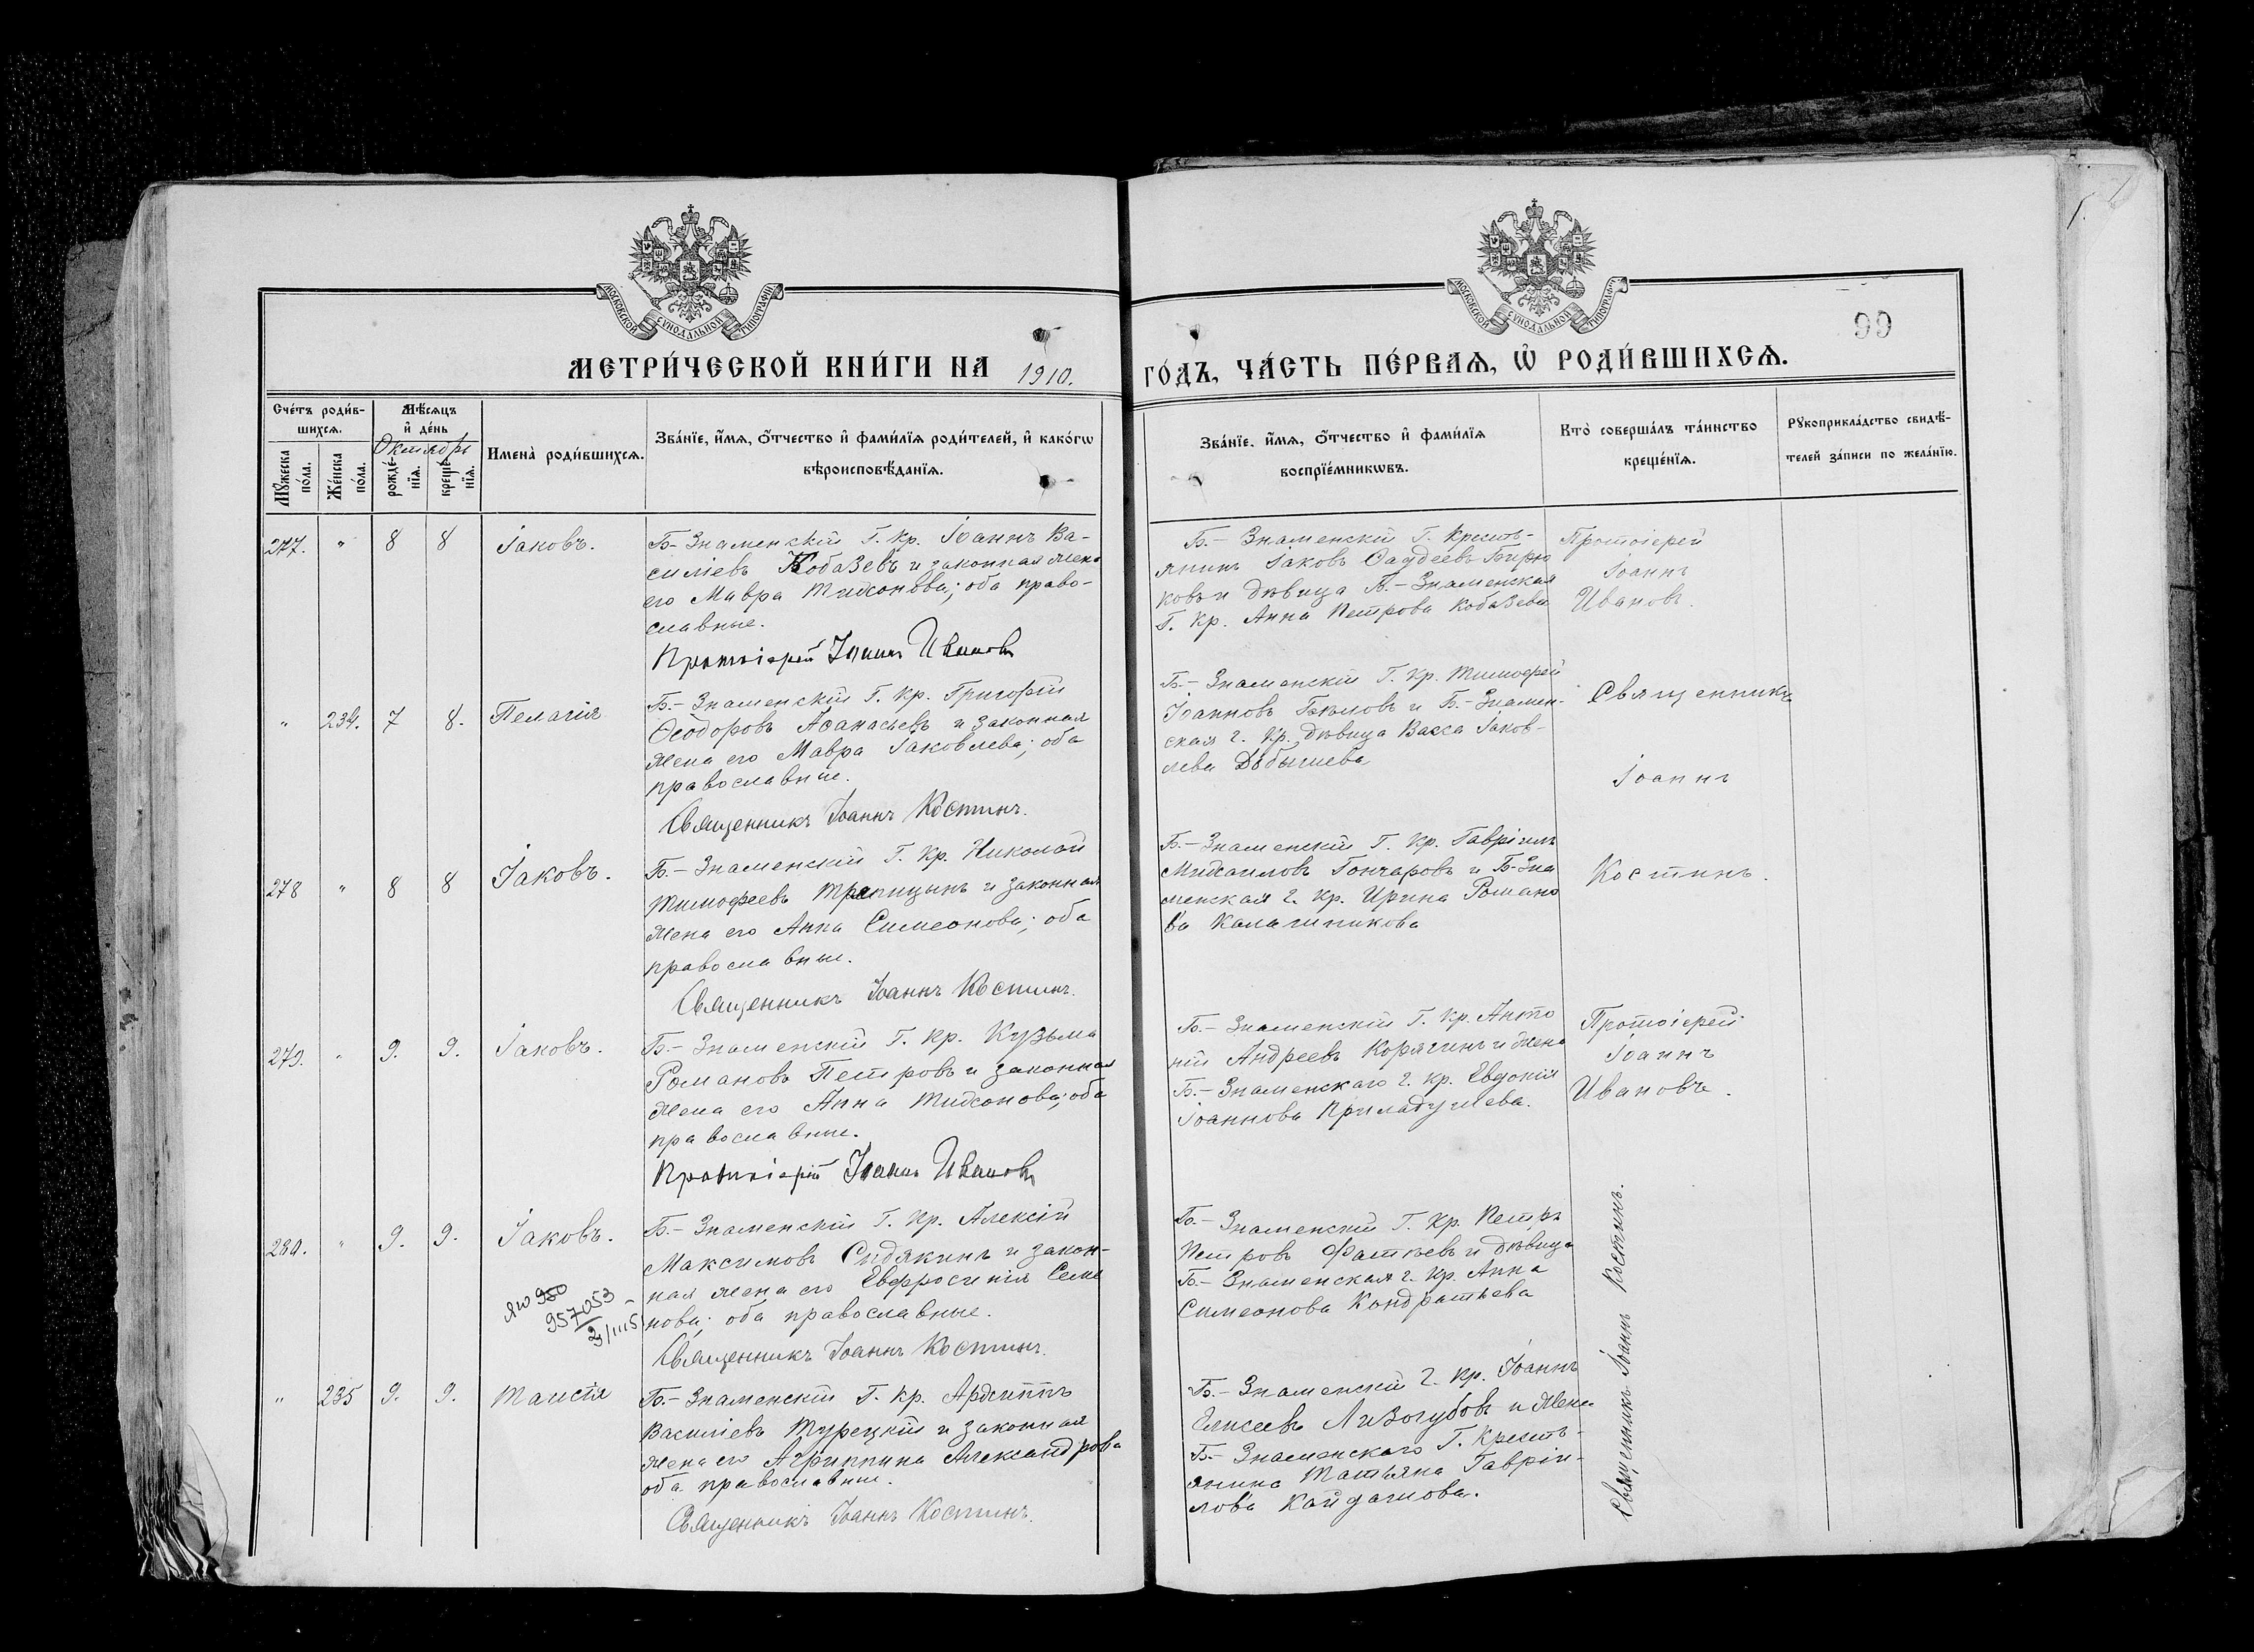 МОСКОВСКОЙ СУНОДАЛЬНОЙ ТИПОГРАФИИ
МОСКОВСКОЙ СУНОДАЛЬНОЙ ТИПОГРАФИИ
99
МЕТРИ́ЧЕСКОЙ КНИ́ГИ НА 1910. ГО́ДЪ, ЧА́СТЬ ПЕ́РВАѦ, Ѡ РОДИ́ВШИХСѦ.
Сче́тъ роди́в-
шихсѧ.
Мꙋ́жеска по́ла.
Же́нска по́ла.
Мѣ́сѧцъ
и҆ де́нь
Октябрь
рожде́-
нїѧ.
креще́-
нїѧ.
Имена̀ роди́вшихсѧ.
Зва́нїе, и҆́мѧ, ѻ҆́тчество и҆ фами́лїѧ роди́телей, и҆ како́гѡ
вѣроисповѣ́данїѧ.
Зва́нїе, и҆́мѧ, ѻ҆́тчество и҆ фами́лїѧ
воспрїе́мникѡвъ.
Кто̀ соверша́лъ та́инство
креще́нїѧ.
Рꙋкоприкла́дство свидѣ́-
телей за́писи по жела́нїю.
277. " 8 8 Іаковъ.
Б-Знаменскій Г. Кр. Іоаннъ Ва-
силіевъ Кобазевъ и законная жена
его Мавра Тихонова; оба право-
славные.
Протоіерей Іоаннъ Ивановъ
Б.-Знаменскій Г. Кресть-
янинъ Іаковъ Ѳаддеевъ Бирю
ковъ и дѣвица Б.-Знаменская
Г. Кр. Анна Петрова Кобазева
Протоіерей
Іоаннъ
Ивановъ.
" 234. 7 8. Пелагія
Б-Знаменскій Г. Кр. Григорій
Ѳеодоровъ Аѳанасьевъ и законная
жена его Мавра Іаковлева; оба
православные.
Священникъ Іоаннъ Костинъ.
Б.-Знаменскій Г. Кр. Тимофей
Іоанновъ и Б.-Знамен-
ская г. Кр. дѣвица Васса Іаков-
лева
Священникъ
Іоаннъ
Костинъ.
278 " 8 8 Іаковъ.
Б.-Знаменскій Г. Кр. Николай
Тимофеевъ Тряпицынъ и законная
жена его Анна Симеонова; оба
православные.
Священникъ Іоаннъ Костинъ.
Б.-Знаменскій Г. Кр. Гавріилъ
Михаиловъ Гончаровъ и Б-Зна
менская г. Кр. Ирина Романо
ва Калашникова
279. " 9. 9. Іаковъ.
Б-Знаменскій Г. Кр. Кузьма
Романовъ Петровъ и законная
жена его Анна Тихонова; оба
православные.
Протоіерей Іоаннъ Ивановъ
Б.-Знаменскій Г. Кр. Анто
ній Андреевъ Корягинъ и жена
Б.-Знаменскаго г. Кр. Евдокія
Іоаннова
Протоіерей
Іоаннъ
Ивановъ.
280. " 9. 9. Іаковъ.
Б.-Знаменскій Г. Кр. Алексій
Максимовъ Сидякинъ и закон-
ная жена его Евфросинія Семе
нова; оба православные.
Священникъ Іоаннъ Костинъ.
957053
Б.-Знаменскій Г. Кр. Петръ
Петровъ Фатѣевъ и дѣвица
Б.-Знаменская г. Кр. Анна
Симеонова Кондратьева
Священникъ Іоаннъ Костинъ.
" 235 9. 9. Таисія
Б.-Знаменскій Г. Кр. Архиппъ
Василіевъ Турецкій и законная
жена его Агриппина Александрова
оба православные.
Священникъ Іоаннъ Костинъ.
Б.-Знаменскій г. Кр. Іоаннъ
Елисеевъ Лизогубовъ и жена
Б-Знаменскаго Г. Кресть-
янина Татьяна Гавріи-
лова Кайдашова.